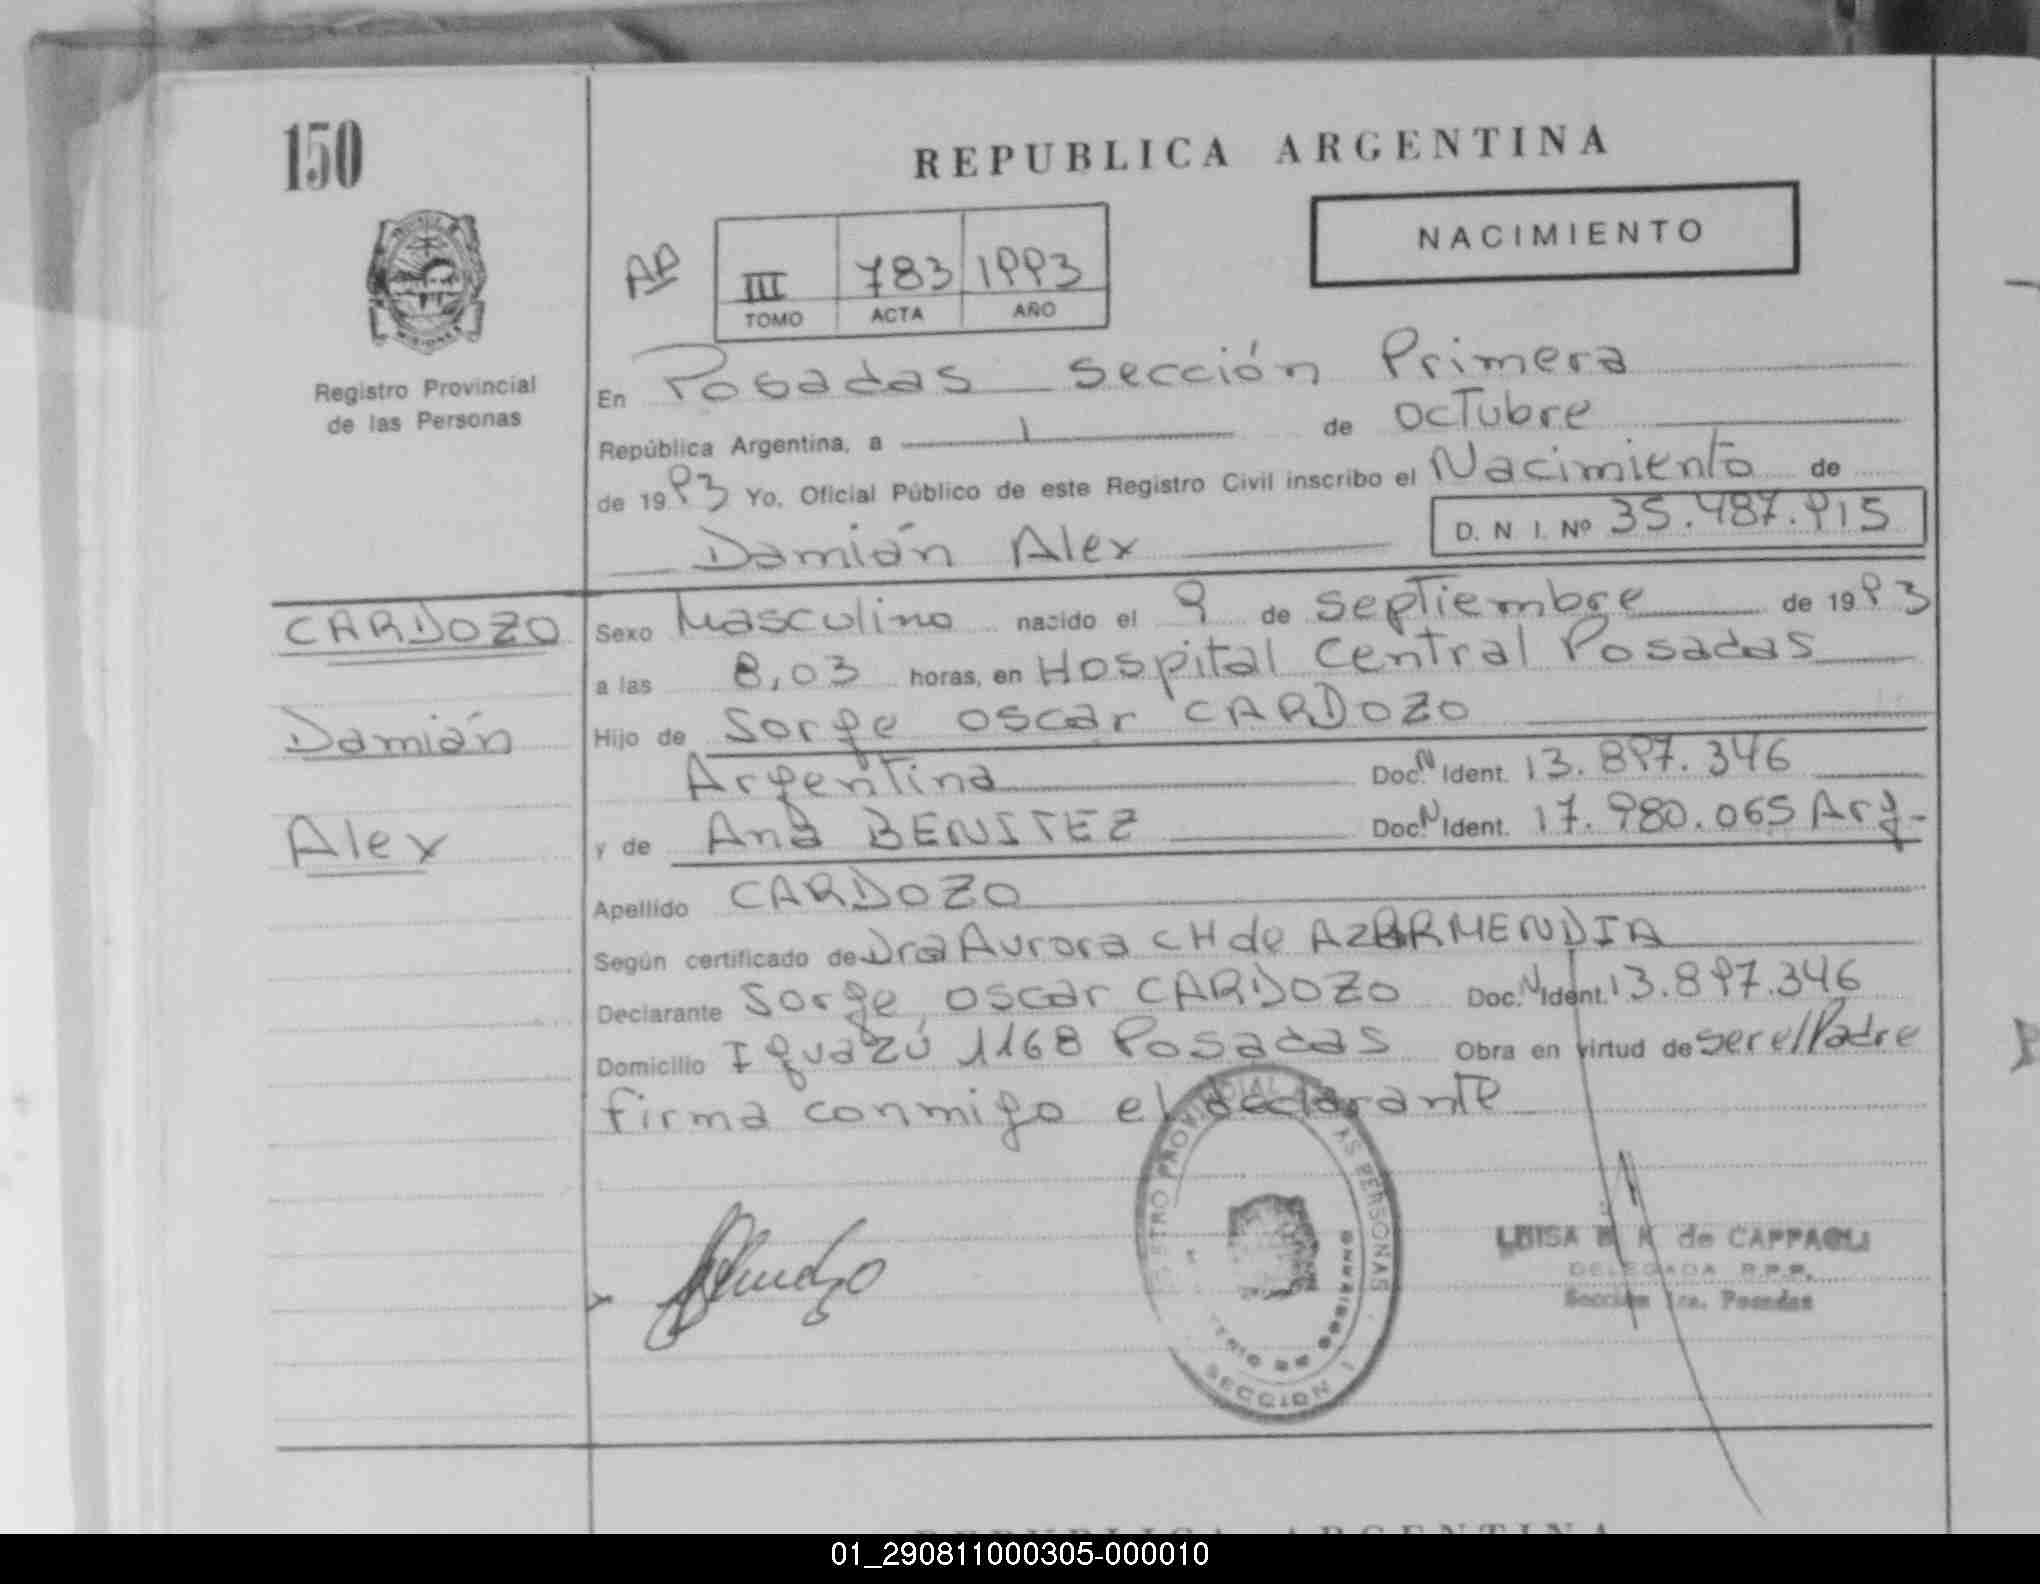 150
REPUBLICA ARGENTINA
NACIMIENTO
AP III 783 1993
TOMO ACTA AÑO
MISIONES
Registro Provincial
de las Personas
En Posadas Sección Primera
República Argentina, a 1 de Octubre
de 1993 Yo, Oficial Público de este Registro Civil inscribo el Nacimiento de
D. N. I. Nº 35.487.915
Damián Alex
CARDOZO
Damián
Alex
Sexo Masculino nacido el 9 de Septiembre de 1993
a las 8,03 horas, en Hospital Central Posadas
Hijo de Jorge Oscar CARDOZO
Argentina Doc. N Ident. 13.897.346
y de Ana BENITEZ Doc. N Ident. 17.980.065 Arg-
Apellido CARDOZO
Según certificado de Dra Aurora CH de AZARMENDIA
Declarante Jorge Oscar CARDOZO Doc. N Ident. 13.897.346
Domicilio Iguazú 1168 Posadas Obra en virtud de ser el Padre
firma conmigo el declarante
REGISTRO PROVINCIAL DE LAS PERSONAS
SECCION 1
LUISA de CAPPAGLI
DELEGADA R.P.P.
Sección 1ra. Posadas
REPUBLICA ARGENTINA
01_290811000305-000010